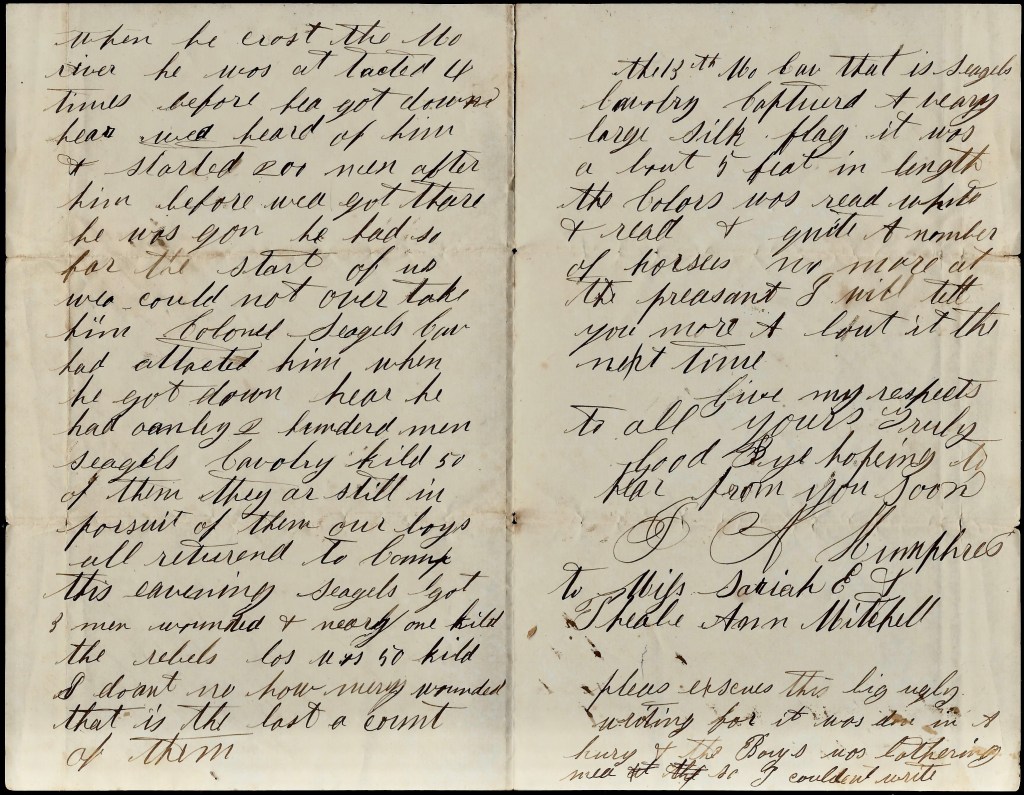 when he crost the Mo
river he wos at tacted 4
times before hea got down
hear wed heard of him
& started 200 men after
him before wea got thare
he wos gon he had so
far the start of us
wea could not over take
him Colonel Seagels Cav
had attacted him when
he got down hear he
had oanley 2 hunderd men
seagels Cavolry kild 50
of them they ar still in
porsuit of them our boys
all returend to Camp
this eavening seagels got
3 men wounded & neary one kild
the rebels los wos 50 kild
I doant no how meny wounded
that is the last a count
of them
the 13th Mo Cav that is seagels
Cavolry Captuerd A veary
large silk flag it was
a bout 5 feat in length
the Colors was read white
& read & quite A nomber
of horses no more at
the preasant I will tell
you more A bout it the
next time
Give my respects
to all yours Truly
Good Bye hopeing to
hear from you soon
T A Humphres
to Miss Sariah E J
Pheabe Ann Mitchell
pleas exscues this big ugly
writing for it was don in A
hury & the Boys wos bothering
mea so I couldent write